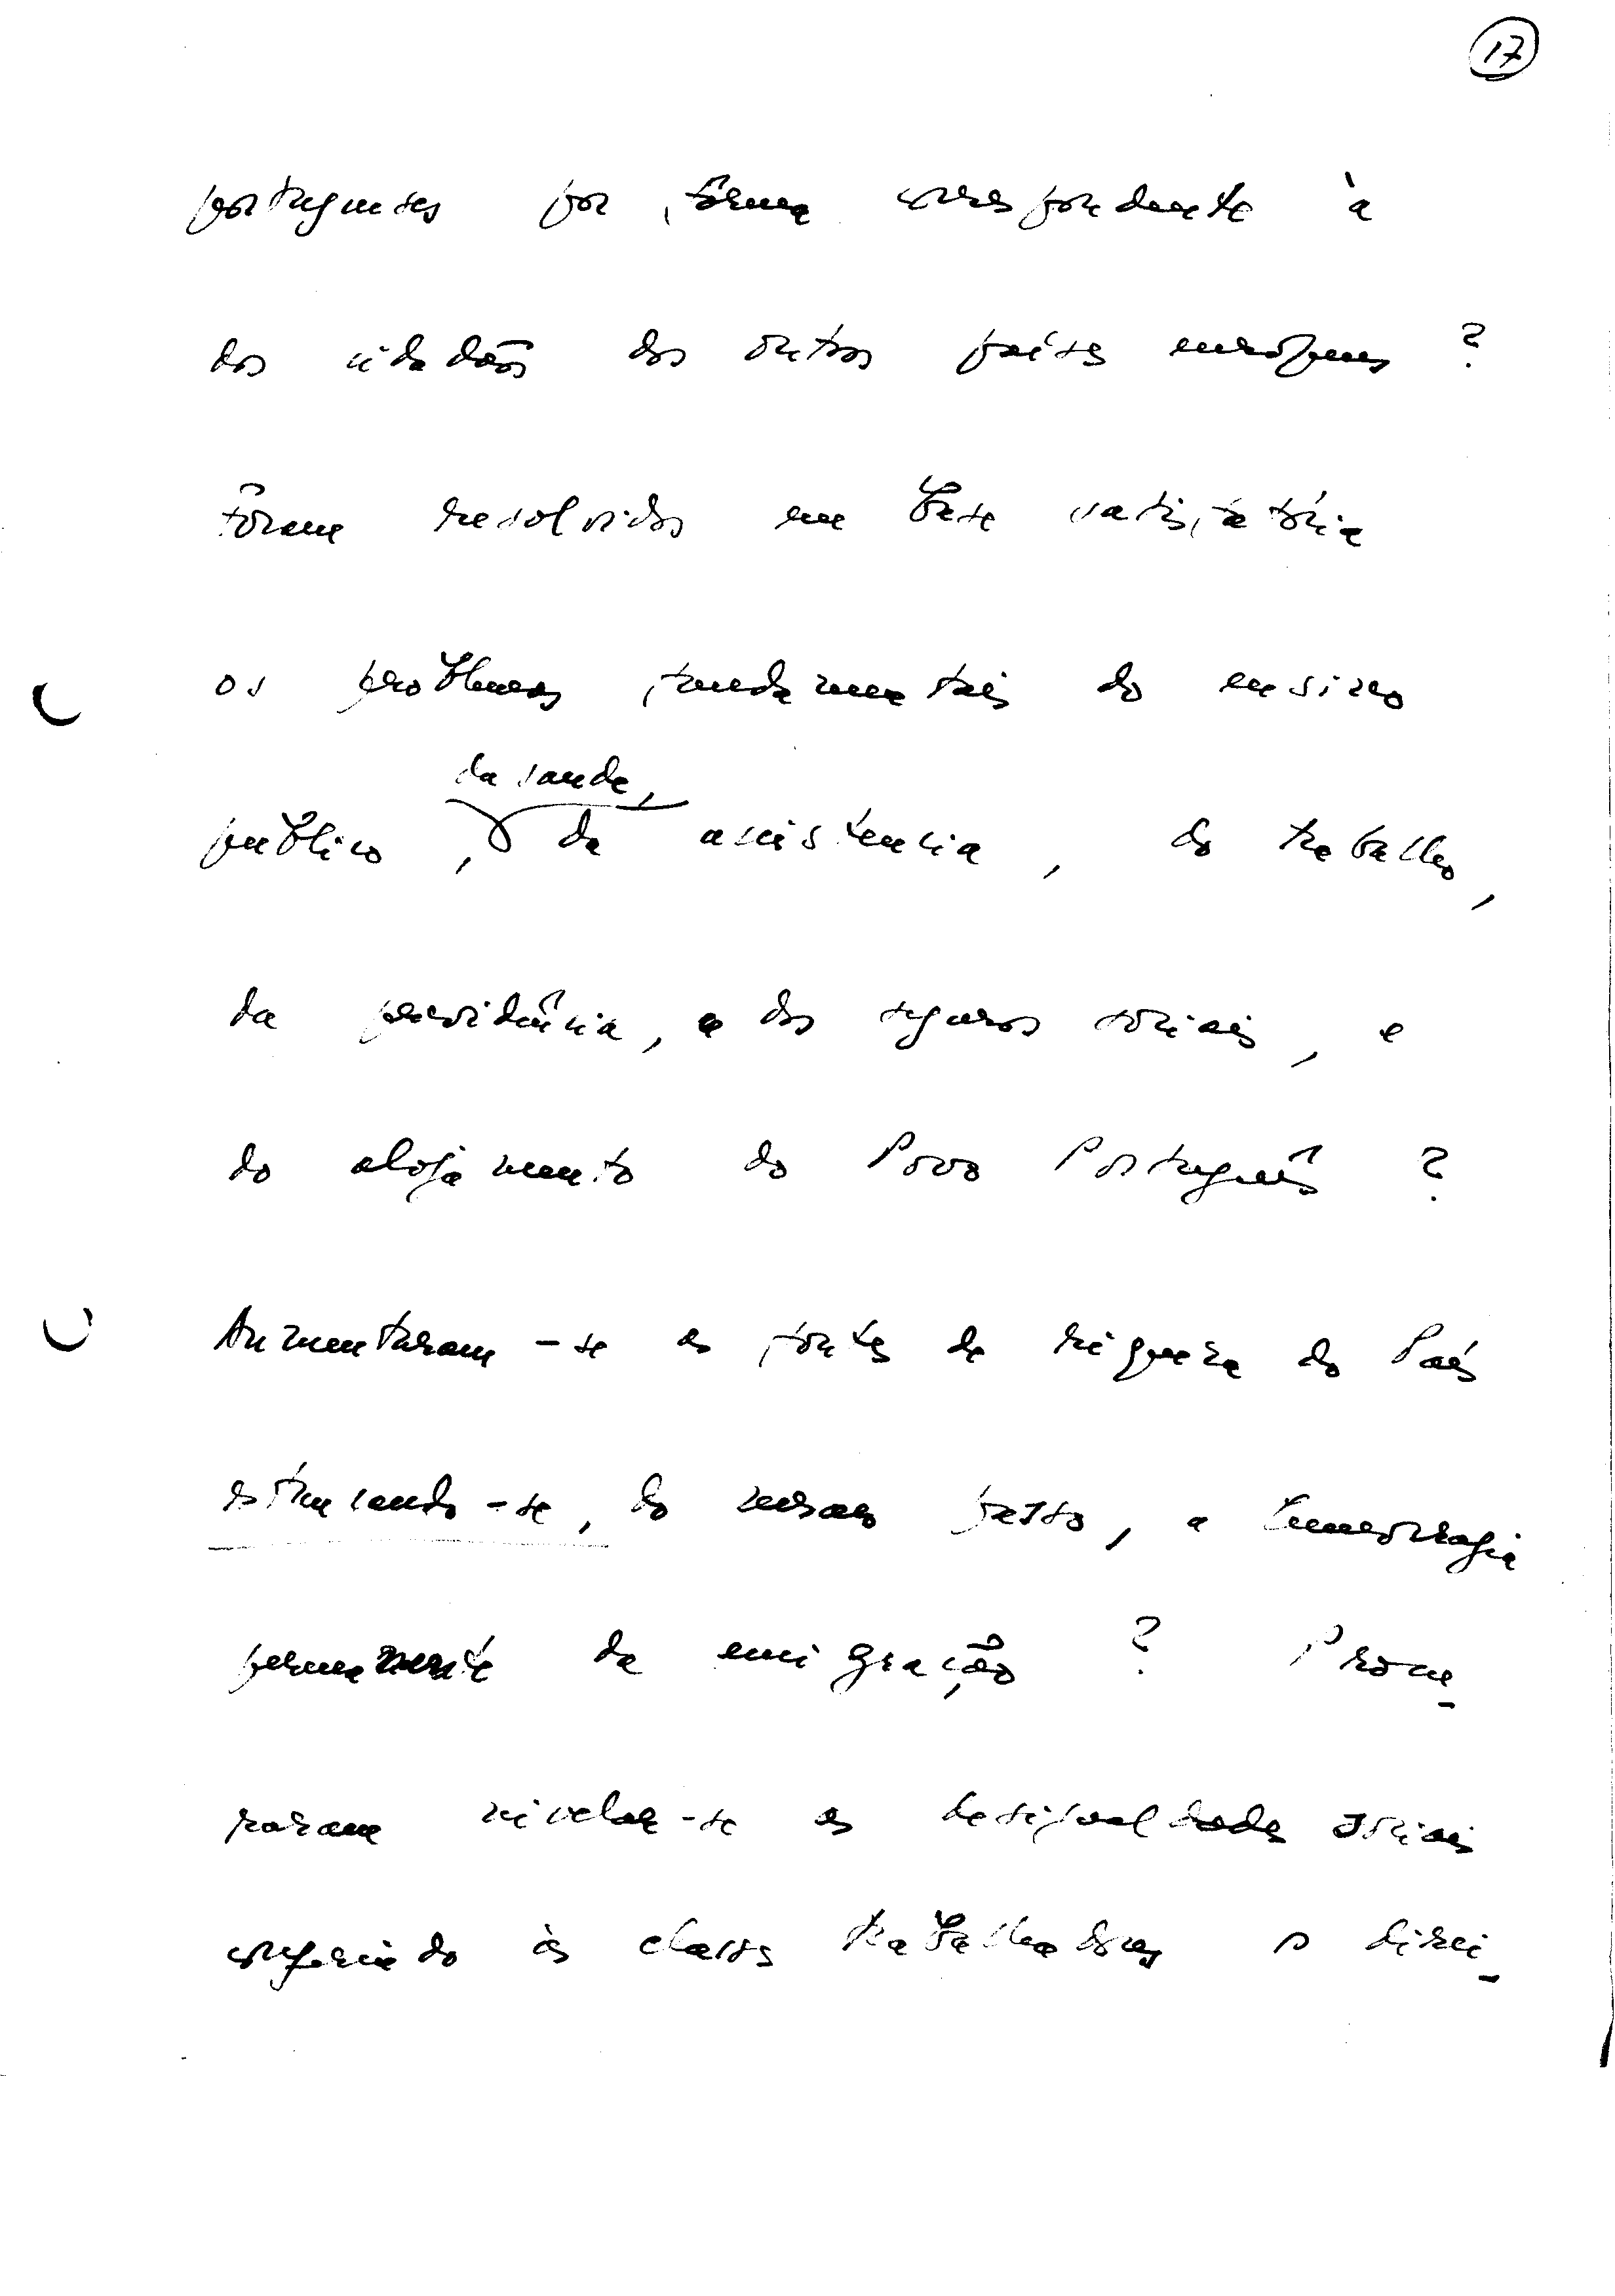 17
portugueses por fórma correspondente à
dos cidadãos dos outros países europeus ?
Fôram resolvidos em base satisfatória
os problemas fundamentais do ensino
da saude,
público , da assistencia , do trabalho ,
da previdência , e dos seguros sociais , e
do alojamento do Povo Português ?
Aumentaram-se as fontes de riqueza do País
estancando-se , do mesmo passo , a hemorragia
permanente da emigração ? Procu-
raram nivelar-se as desigualdades sociais
conferindo às classes trabalhadoras o direi-